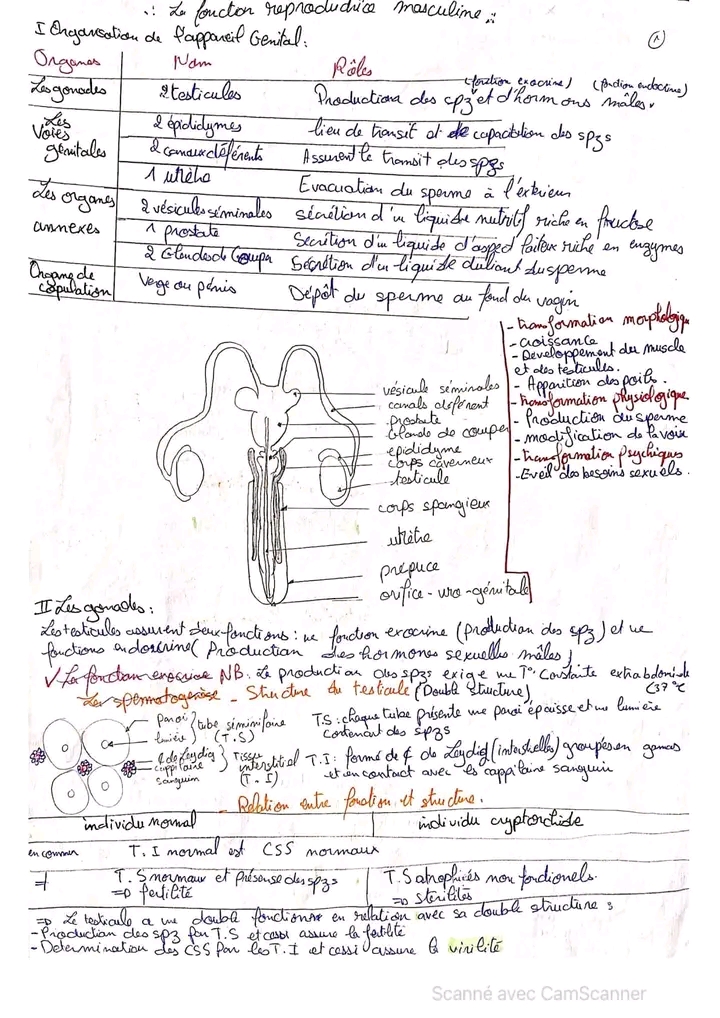 ∴ La fonction reproductrice masculine ∴
I Organisation de l'appareil Genital:
1
Organes Nom Rôles
(fonction exocrine) (fonction endocrine)
Les gonades 2 testicules Production des spz et d'hormons mâles.
Les voies génitales
2 épididymes lieu de transit et de capacitation des spzs
2 canaux déférents Assurent le transit des spzs
1 urètre Evacuation du sperme à l'extérieur
Les organes annexes
2 vésicules séminales sécrétion d'un liquide nutritif riche en fructose
1 prostate Secrition d'un liquide d'aspect laiteux riche en enzymes
2 Glandes de Couper Sécrétion d'un liquide diluant du sperme
Organe de copulation Verge ou pénis Dépôt du sperme au fond du vagin
- transformation morphologique
- croissance
- Developpement du muscle
et des testicules.
- Apparition des poils.
- transformation physiologique
- Production du sperme
- modification de la voix
- transformation psychique
- Eveil des besoins sexuels.
vésicule séminales
canals déférent
prostate
Glande de couper
épididyme
corps caverneux
testicule
corps spongieux
urètre
prépuce
orifice - uro - génitale
II Les gonades:
Les testicules assurent deux fonctions : une fonction exocrine (production des spz) et une
fonctions endocrine (Production des hormones sexuelles mâles)
✓ La fonction exocrine NB: La production des spzs exige une T° Constante extrabdominale
(37°C
La spermatogenèse - Structure du testicule (Double structure)
Paroi
lumière
} tube séminifaire
(T.S)
¢ de Leydig
cappilaire
sanguin
} Tissu
interstitiel
(T.I)
T.S: chaque tube présente une paroi épaisse et une lumière
contenant des spzs
T.I: formé de ¢ de Leydig (interstielles) groupés en
et en contact avec les cappilaire sanguin
- Relation entre fonction et structure.
individu normal individu cryptorchide
en commun T.I normal et CSS normaux
≠ T.S normaux et présense des spzs T.S atrophiées non fonctionels.
⇒ fertilité ⇒ stérilités
⇒ Le testicule a une double fonctions en relation avec sa double structure :
- Production des spz par T.S et cessi assure la fertilité
- Determination des CSS par les T.I et cessi assure la virilité
Scanné avec CamScanner